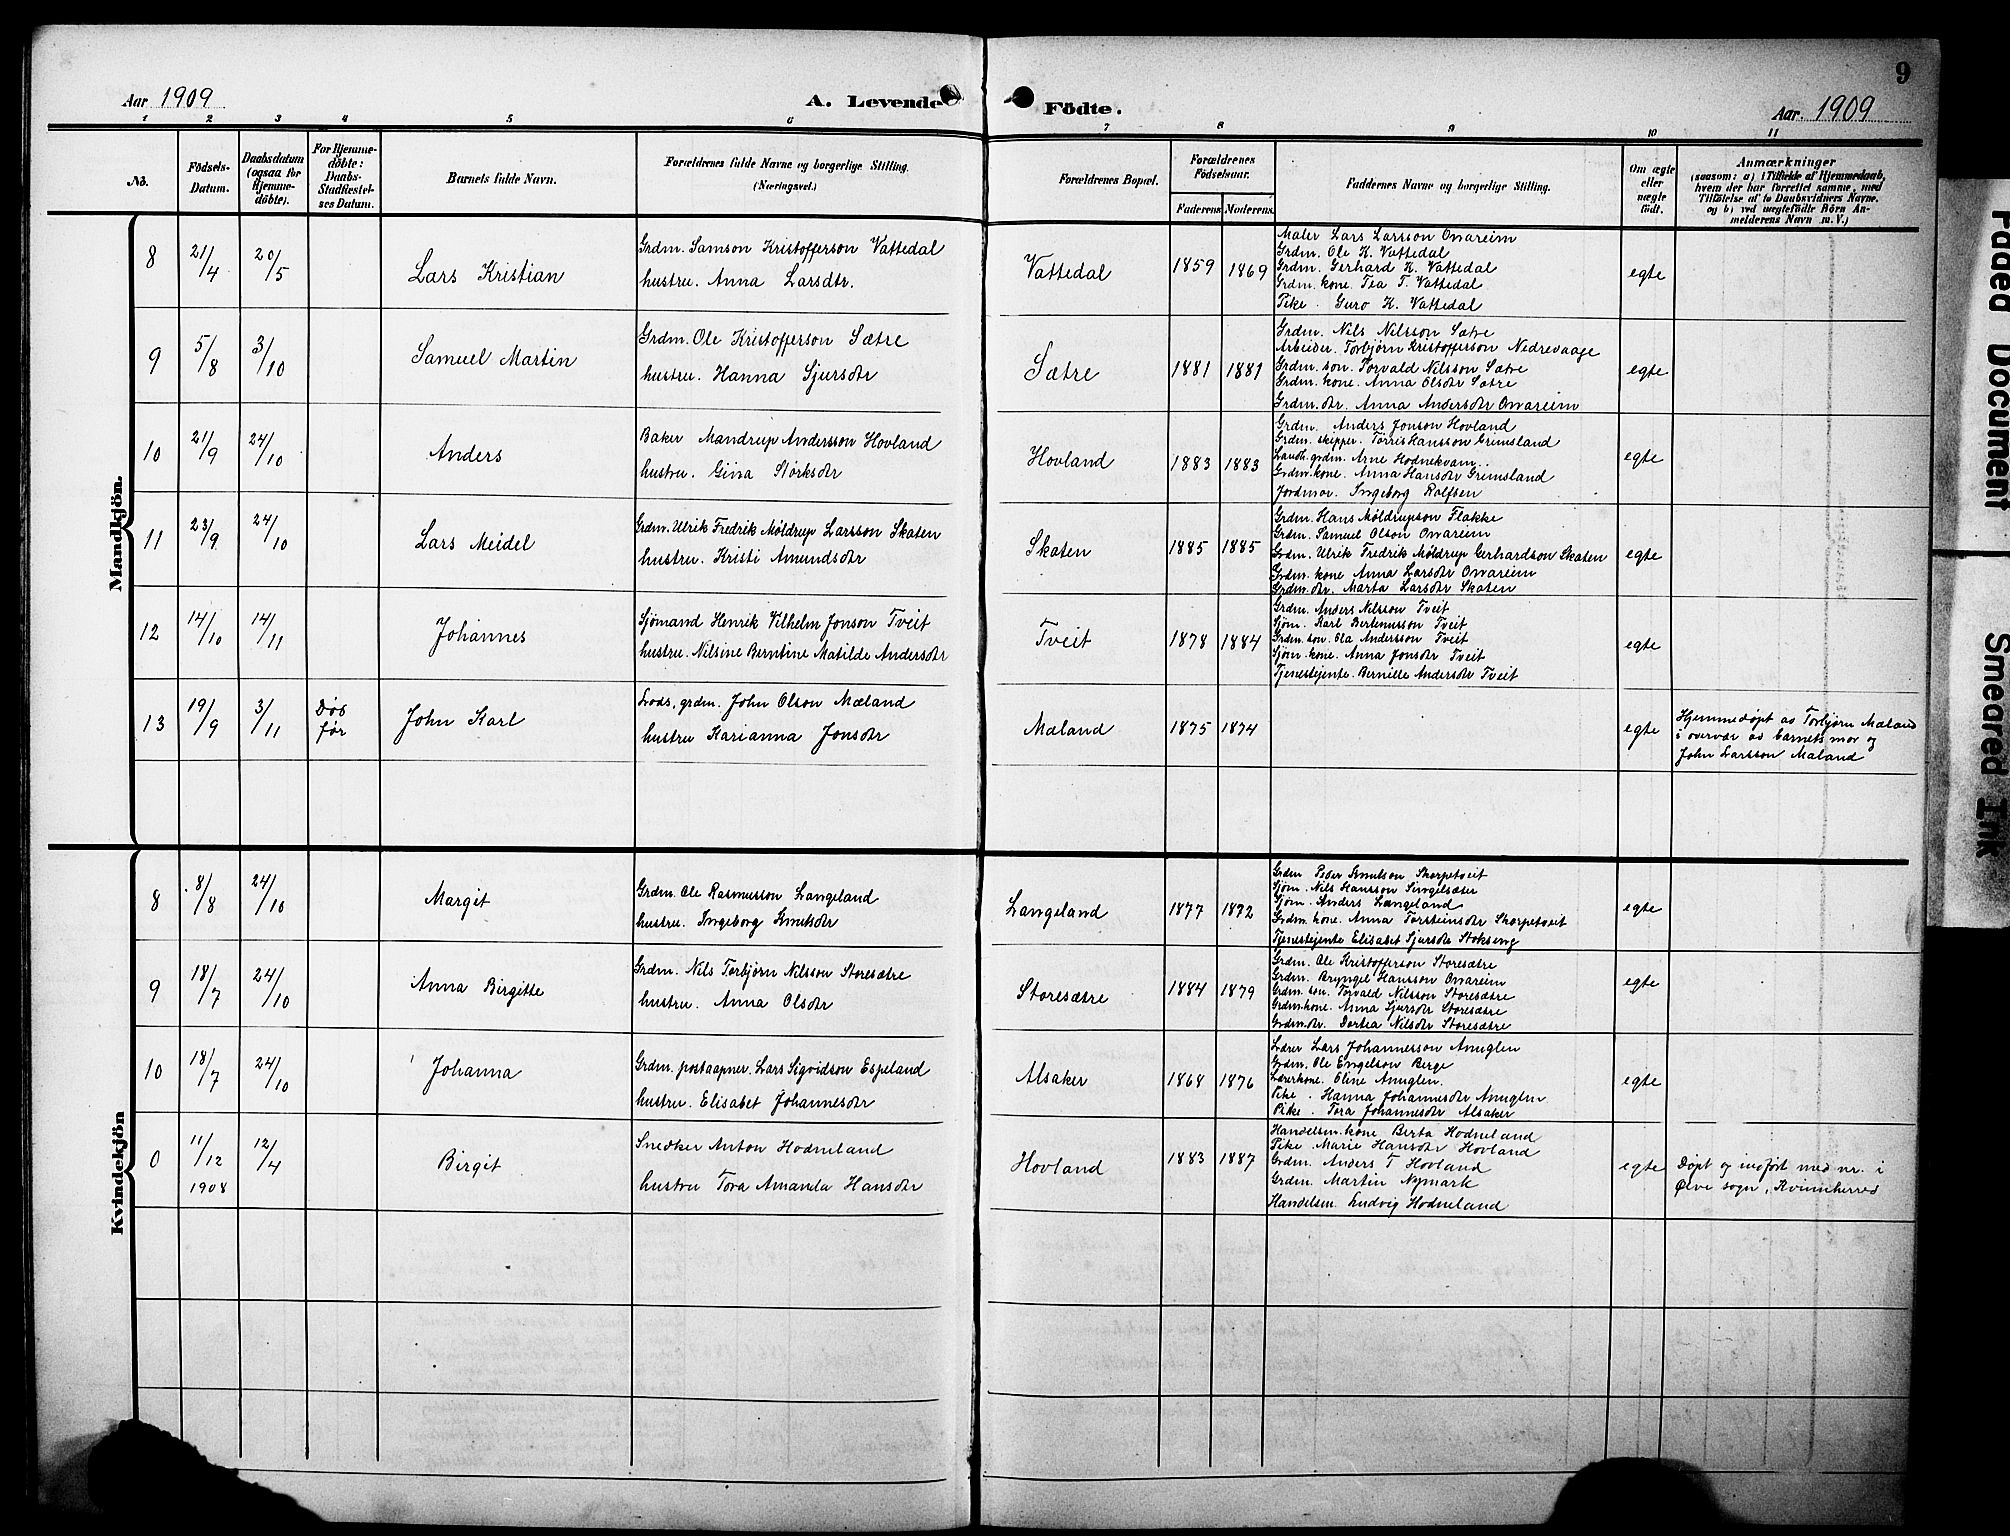 9
Aar 1909
A. Levende Födte.
Aar 1909
1 2 3 4 5 6 7 8 9 10 11
No.
Födsels-
Datum.
Daabsdatum
(ogsaa for
Hjemme-
döbte).
For Hjemme-
döbte:
Daabs-
Stadfæstel-
ses Datum.
Barnets fulde Navn.
Forældrenes fulde Navne og borgerlige Stilling.
(Næringsvei.)
Forældrenes Bopæl.
Forældrenes
Födselsaar.
Faderens Moderens
Faddernes Navne og borgerlige Stilling.
Om ægte
eller
uægte
født.
Anmærkninger
(saasom: a) i Tilfælde af Hjemmedaab,
hvem der har forrettet samme, med
Tilföielse af to Daabsvidners Navne.
og b) ved uægtefödte Börn An-
melderens Navn m. V.)
Mandkjön.
8 21/4 20/5 Lars Kristian
Grdm. Samson Kristofferson Vattedal
hustru. Anna Larsdtr.
Vattedal 1859 1869
Maler Lars Larsson Omareim
Grdm. Ole K. Vattedal
Grdm. Gerhard K. Vattedal
Grdm. kone. Tea T. Vattedal
Pike. Guro K. Vattedal
egte
9 5/8 3/10 Samuel Martin
Grdm. Ole Kristofferson Sætre
hustru. Hanna Sjursdtr
Sætre 1881 1881
Grdm. Nils Nilsson Sætre
Arbeider. Torbjørn Kristofferson Nedrevaage
Grdm. søn. Torvald Nilsson Sætre
Grdm. kone. Anna Olsdtr Sætre
Grdm. dtr. Anna Andersdtr Omareim
egte
10 21/9 24/10 Anders
Baker Mandrup Andersson Hovland
hustru. Gina Størksdtr
Hovland 1883 1883
Grdm. Anders Jonson Hovland
Grdm. skipper. Tørris Hansson Grimsland
Landh. grdm. Arne Hodnekvam.
Grdm. kone. Anna Hansdtr Grimsland
Jordmor. Ingeborg Rolfsen
egte
11 23/9 24/10 Lars Meidel
Grdm. Ulrik Fredrik Møldrup Larsson Skaten
hustru. Kristi Amundsdtr
Skaten 1885 1885
Grdm. Hans Møldrupson Flakke
Grdm. Samuel Olson Omareim
Grdm. Ulrik Fredrik Møldrup Gerhardson Skaten
Grdm. kone Anna Larsdtr Omareim
Grdm. dtr. Marta Larsdtr Skaten
egte
12 14/10 14/11 Johannes
Sjømand Henrik Vilhelm Jonson Tveit
hustru. Nilsine Berntine Matilde Andersdtr
Tveit 1878 1884
Grdm. Anders Nilsson Tveit
Sjøm. Karl Bertenusson Tveit
Grdm. søn. Ola Andersson Tveit
Sjøm. kone. Anna Jonsdtr Tveit
Tjenestejente. Bernille Andersdtr Tveit
egte
13 19/9 3/11 Død
før
John Karl
Lods, grdm. John Olson Mæland
hustru Karianna Jonsdtr
Mæland 1875 1874
egte
Hjemmedøpt av Torbjørn Mæland
i overvær av barnets mor og
John Larsson Mæland
Kvindekjön
8 8/8 24/10 Margit
Grdm. Ole Rasmusson Langeland
hustru. Ingeborg Knutsdtr
Langeland 1877 1872
Grdm Peder Knutson Skorpetveit
Sjøm. Nils Hansson Singelsæter
Sjøm. Anders Langeland
Grdm. kone. Anna Torsteinsdtr Skorpetveit
Tjenestejente Elisabet Sjursdtr Stokseng
egte
9 18/7 24/10 Anna Birgitte
Grdm. Nils Torbjørn Nilsson Storesætre
hustru. Anna Olsdtr
Storesætre 1884 1879
Grdm. Ole Kristofferson Storesætre
Grdm. Bryngel Hansson Omareim
Grdm. søn. Torvald Nilsson Storesætre
Grdm. kone. Anna Sjursdtr Storesætre
Grdm. dtr. Dortea Nilsdtr Storesætre
egte
10 18/7 24/10 Johanna
Grdm. postaapner. Lars Sigvidson Espeland
hustru. Elisabet Johannesdtr
Alsaker 1868 1876
Lærer Lars Johannesson Anuglen
Grdm. Ole Engelson Berge
Lærerkone. Oline Anuglen.
Pike. Hanna Johannesdtr Anuglen
Pike. Tora Johannesdtr Alsaker
egte
0 11/12 12/4 Birgit
1908
Snedker Anton Hodneland
hustru Tora Amanda Hansdtr
Hovland 1883 1887
Handelsm. kone Berta Hodneland
Pike. Marie Hansdtr Hovland
Grdm. Anders T Hovland
Grdm. Martin Nymark
Handelsm. Ludvig Hodneland
egte
Døpt og indført med nr. i
Ølve sogn, Kvinnherred
Faded Document
Smeared Ink